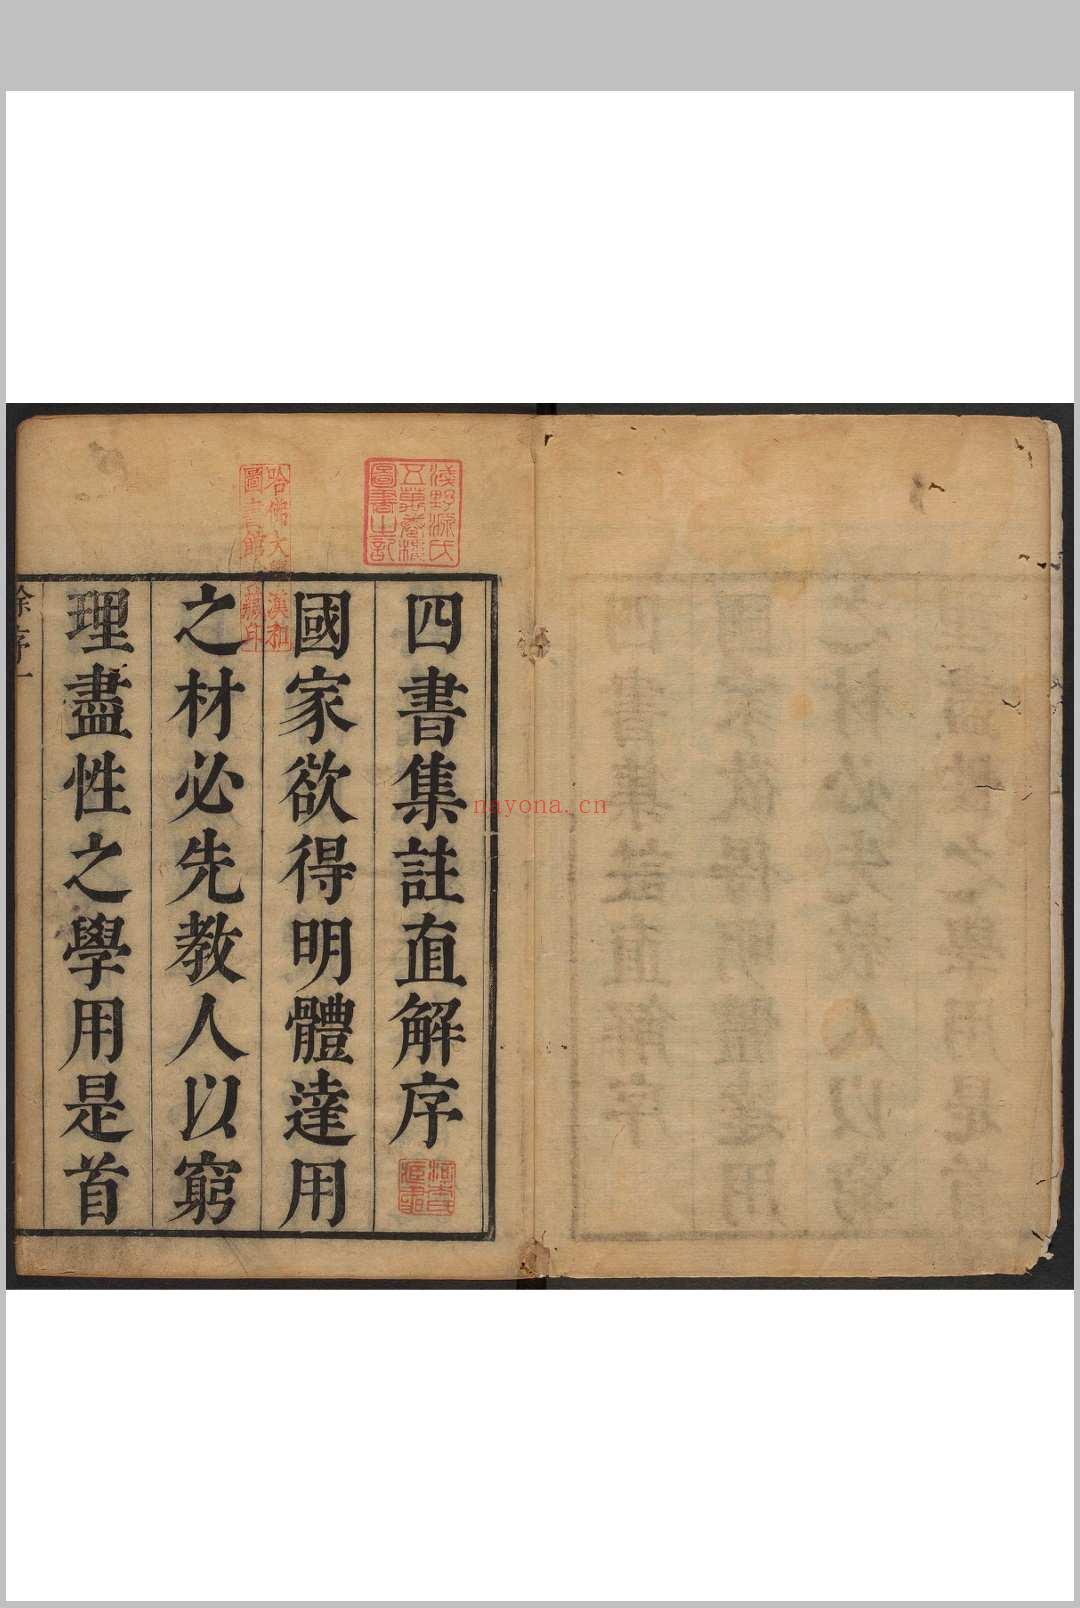 四書集註直解序
國家欲得明體達用
之材必先教人以窮
理盡性之學用是首
徐序一
淺野源氏
五萬卷樓
圖書之記
哈佛大學漢和
圖書館珍藏印
nayona.cn